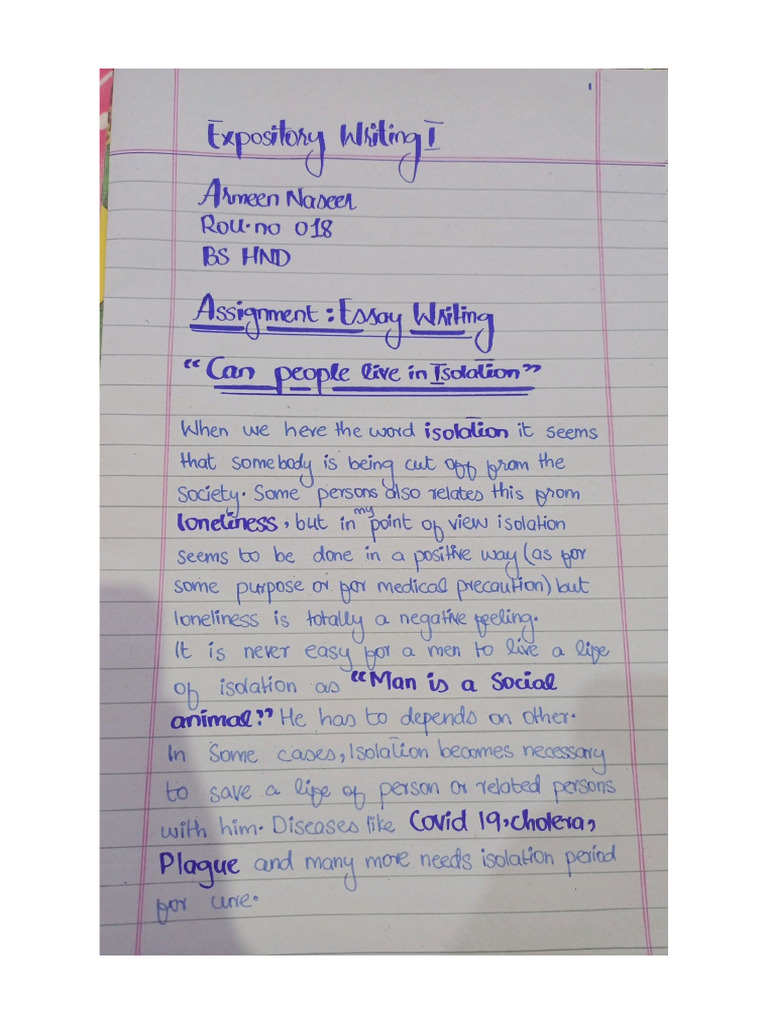 Expository Writing I
Armeen Naseer
Roll.no 018
BS HND
Assignment : Essay Writing
"Can people live in Isolation"
When we here the word isolation it seems
that somebody is being cut off from the
society. Some persons also relates this from
loneliness, but in my point of view isolation
seems to be done in a positive way (as for
some purpose or for medical precaution) but
loneliness is totally a negative feeling.
It is never easy for a men to live a life
of isolation as "Man is a Social
animal." He has to depends on other.
In some cases, Isolation becomes necessary
to save a life of person or related persons
with him. Diseases like Covid 19, cholera,
Plague and many more needs isolation period
for cure.